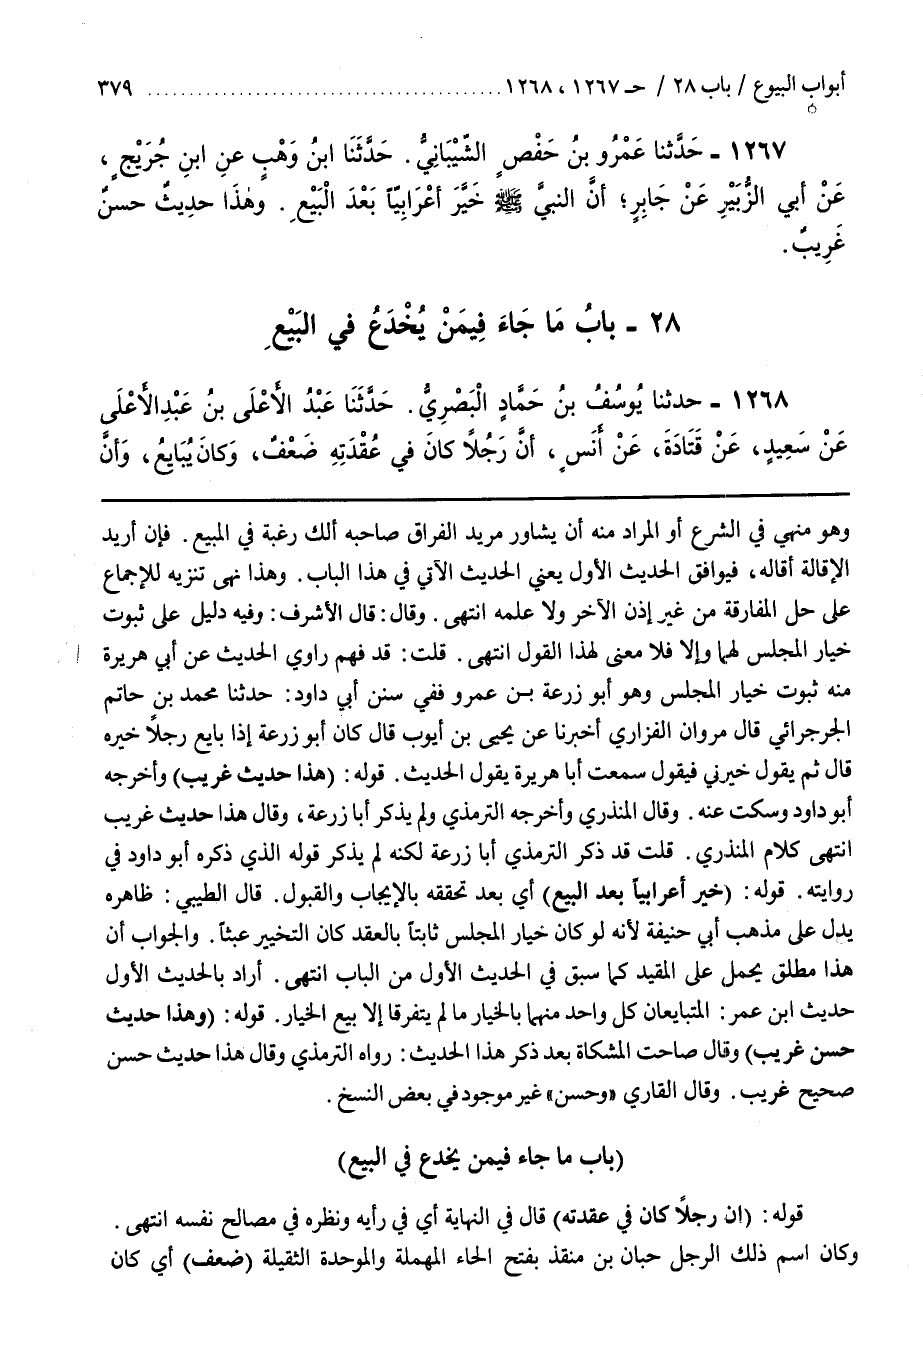 أبواب البيوع / باب ٢٨ / حـ ١٢٦٧ ، ١٢٦٨ ........................................... ٣٧٩
١٢٦٧ ـ حَدَّثنا عَمْرُو بنُ حَفْصٍ الشَّيْبَانِيُّ. حَدَّثَنَا ابنُ وَهْبٍ عنِ ابنِ جُرَيْجٍ،
عَنْ أبي الزُّبَيْرِ عَنْ جَابِرٍ؛ أنَّ النبيَّ ﷺ خَيَّرَ أعْرَابِيّاً بَعْدَ الْبَيْعِ. وهٰذَا حديثٌ حسنٌ
غَرِيبٌ.
٢٨ ـ بابُ مَا جَاءَ فِيمَنْ يُخْدَعُ في البَيْعِ
١٢٦٨ ـ حدثنا يُوسُفُ بنُ حَمَّادٍ الْبَصْرِيُّ. حَدَّثَنَا عَبْدُ الأَعْلَى بنُ عَبْدِالأَعْلَى
عَنْ سَعِيدٍ، عَنْ قَتَادَةَ، عَنْ أَنَسٍ، أنَّ رَجُلاً كانَ في عُقْدَتِهِ ضَعْفٌ، وَكانَ يُبَايِعُ، وَأنَّ
وهو منهي في الشرع أو المراد منه أن يشاور مريد الفراق صاحبه ألك رغبة في المبيع. فإن أريد
الإقالة أقاله، فيوافق الحديث الأول يعني الحديث الآتي في هذا الباب. وهذا نهى تنزيه للإجماع
على حل المفارقة من غير إذن الآخر ولا علمه انتهى. وقال: قال الأشرف: وفيه دليل على ثبوت
خيار المجلس لهما وإلا فلا معنى لهذا القول انتهى. قلت: قد فهم راوي الحديث عن أبي هريرة
منه ثبوت خيار المجلس وهو أبو زرعة بـن عمرو ففي سنن أبي داود: حدثنا محمد بن حاتم
الجرجرائي قال مروان الفزاري أخبرنا عن يحيى بن أيوب قال كان أبو زرعة إذا بايع رجلاً خيره
قال ثم يقول خيرني فيقول سمعت أبا هريرة يقول الحديث. قوله: (هذا حديث غريب) وأخرجه
أبو داود وسكت عنه. وقال المنذري وأخرجه الترمذي ولم يذكر أبا زرعة، وقال هذا حديث غريب
انتهى كلام المنذري. قلت قد ذكر الترمذي أبا زرعة لكنه لم يذكر قوله الذي ذكره أبو داود في
روايته. قوله: (خير أعرابياً بعد البيع) أي بعد تحققه بالإيجاب والقبول. قال الطيبي: ظاهره
يدل على مذهب أبي حنيفة لأنه لو كان خيار المجلس ثابتاً بالعقد كان التخيير عبثاً. والجواب أن
هذا مطلق يحمل على المقيد كما سبق في الحديث الأول من الباب انتهى. أراد بالحديث الأول
حديث ابن عمر: المتبايعان كل واحد منهما بالخيار ما لم يتفرقا إلا بيع الخيار. قوله: (وهذا حديث
حسن غريب) وقال صاحت المشكاة بعد ذكر هذا الحديث: رواه الترمذي وقال هذا حديث حسن
صحيح غريب. وقال القاري «وحسن» غير موجود في بعض النسخ.
(باب ما جاء فيمن يخدع في البيع)
قوله: (ان رجلاً كان في عقدته) قال في النهاية أي في رأيه ونظره في مصالح نفسه انتهى.
وكان اسم ذلك الرجل حبان بن منقذ بفتح الحاء المهملة والموحدة الثقيلة (ضعف) أي كان